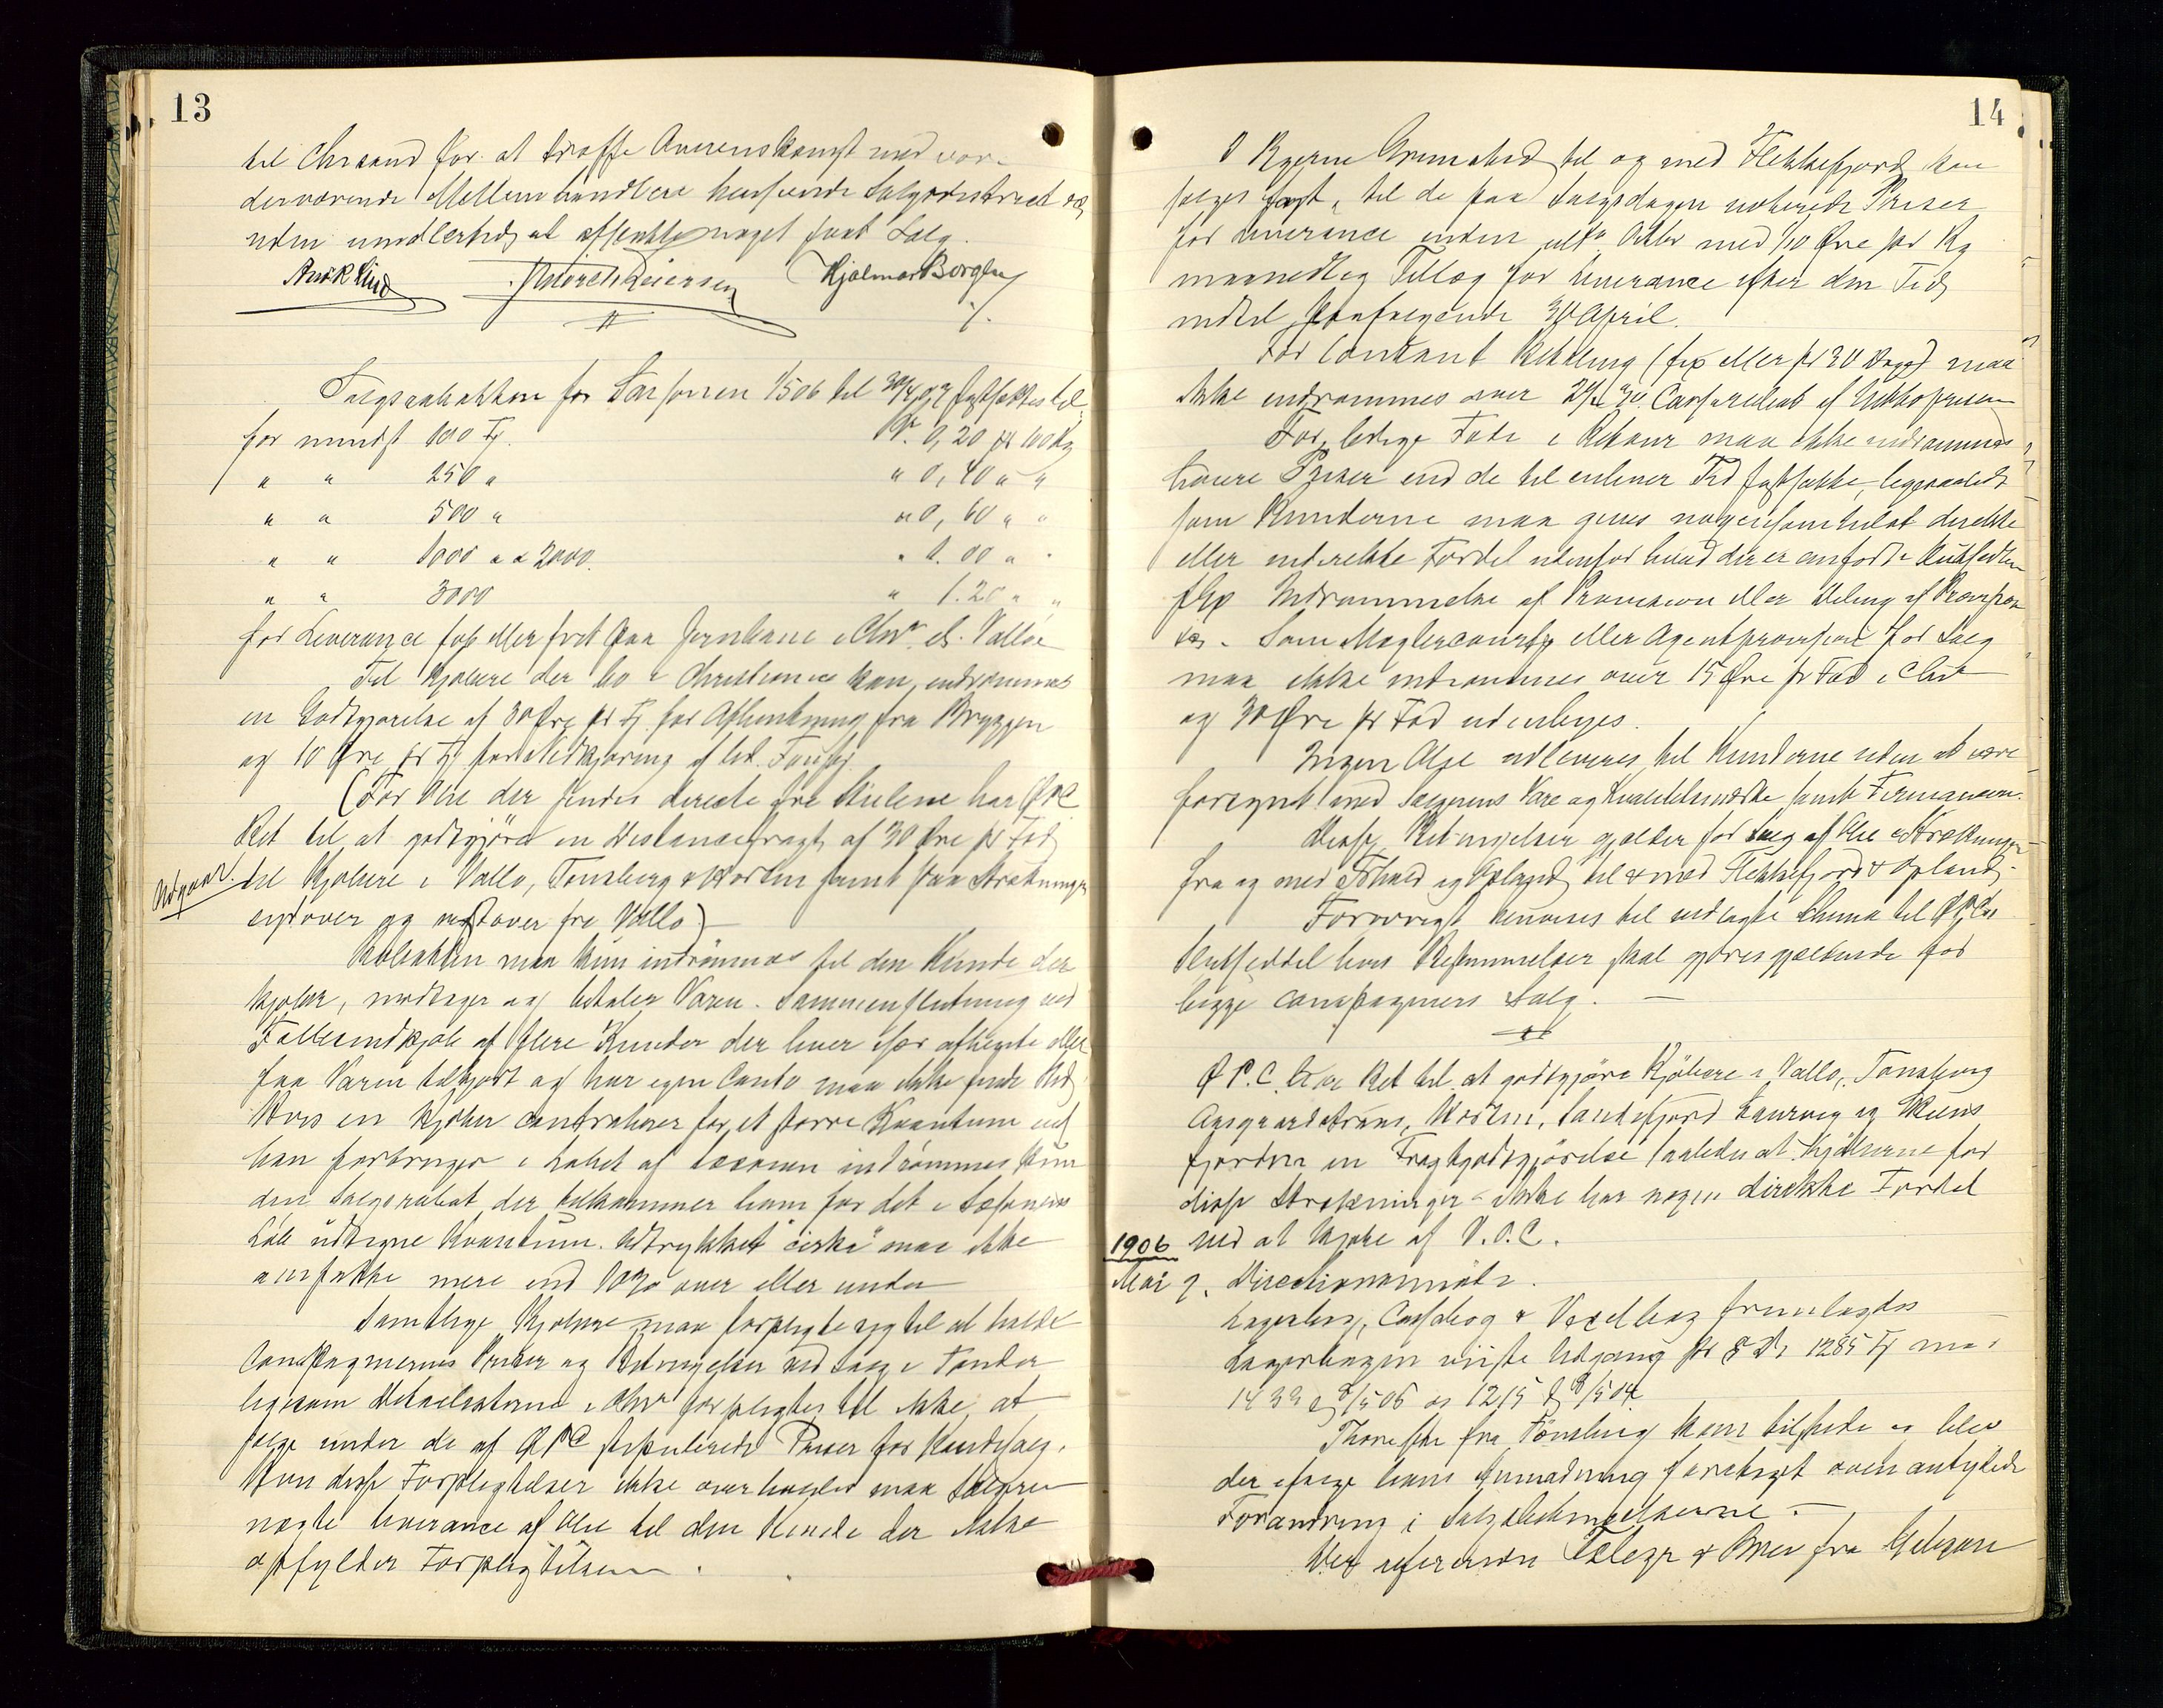 13
til Chrsand for at træffe Overenskomst med vore
derværende Mellemhandlere henseende Salgsdistrict og
uden imidlertid at affslutte noget fast Salg.
Hjalmar Borgh
Salgsrabatten for Sæsonen 1/5 06 til 30/4 07 fastsættes til
for mindst 100 Fj. Kr. 0,20 pr 100 Kg
" " 250 " " 0,40 " "
" " 500 " " 0,60 " "
" " 1000 " a 2000. " 1.00 " "
" " 3000 " 1.20 " "
for Leverance fob eller frit paa Jernbane i Chra. el. Valløe
Til Kjøbere der bo i Christiania kan indrømmes
en Godtgjørelse af 30 Øre pr Fj. for Afhentning fra Bryggen
og 10 Øre pr Fj for Nedkjøring af led. Foustage
(For Olie der sendes directe fra Skiene har ØPC
Ret til at godtgjöre en Distancefragt af 30 Øre pr Fad
Udgaar. til Kjøbere i Vallø, Tönsberg & Horten samt paa Strækninger
sydover og vestover fra Vallø)
Rabatten maa kun indrömmes til den Kunde der
kjøber, modtager og betaler Varen. Sammenslutning ved
Fællesindkjøb af flere Kunder der hver især afhente eller
faa Varen tilkjørt og har egen Conto maa ikke finde Sted
Hvis en Kjøber contraherer for et større Kvantum end
han forbruger i Løbet af Sæsonen indrömmes kun
den Salgsrabat der tilkommer ham for det i Sæsonens
Løb udtagne Kvantum. Udtrykket "cirka" maa ikke
ansættes mere end 10% over eller under
Samtlige Kjøbere maa forpligte sig til at holde
Compagniernes Priser og Betingelser ved Salg i Tønder
ligesom Detaelisterne i Chra forpligtes til ikke at
sælge under de af ØPC stipulerede Priser for Kandesalg.
Hvis disse Forpligtelser ikke overholdes maa Sælgeren
nægte Leverance af Olie til den Kunde der ikke
opfylder Forpligtelsen.
14
I Byerne Grimstad til og med Flekkefjord kan
sælges fast, til de paa Salgsdagen noterede Priser
for Leverance inden ulto Octbr med 1/10 Øre pr Kg
maanedlig Tillæg for Leverance efter den Tid
indtil paafølgende 30 April.
For Contant Betaling (fix eller pr 30 Dage) maa
ikke indrømmes over 2% Cassarabat af Nettoprisen
For ledige Fade i Retour maa ikke indrømmes
høiere Priser end de til enhver Tid fastsatte, ligesaalidt
som Kunderne maa gives nogensomhelst direkte
eller indirekte Fordel udenfor hvad der er anført i Slutsedlen
f Ex Indrømmelse af Provision eller Deling af Provision
Som Maglercourtage eller Agentprovision for Salg
maa ikke indrømmes over 15 Øre pr Fad i Chra
og 30 Øre pr Fad udenbyes.
Ingen Olje udleveres til Kunderne uden at være
forsynt med Sælgerens Vare og Kvalitetsmærke samt Firmanavn.
Disse Betingelser gjælder for Salg af Olie i Strækningen
fra og med og Opland til & med Flekkefjord & Opland.
Forøvrigt henvises til vedlagte Skema til ØPCs
Slutseddel hvis Bestemmelser skal gjøres gjældende for
begge Compagniers Salg. —
Ø P.C. har Ret til at godtgjøre Kjöbere i Vallø, Tönsberg
Aasgaardstrand, Horten, Sandefjord Laurvig og Skiens
fjorden en Fragtgodtgjörelse saaledes at Kjöberne for
disse Strækninger ikke har nogen direkte Fordel
1906 ved at kjøbe af V.O.C.
Mai 9. Directionsmöte.
Lagerbog, Cassabog & Vexelbog fremlagdes
Lagerbogen viiste Udgang pr 8 Ds 1285 Fj mod
1433 8/5 05 og 1215 8/5 04
fra Tönsberg kom tilstede og blev
der efter hans Anmodning foretaget ovenantydede
Forandring i Salgsbetingelserne. —
Der refereredes Telegr & Brev fra